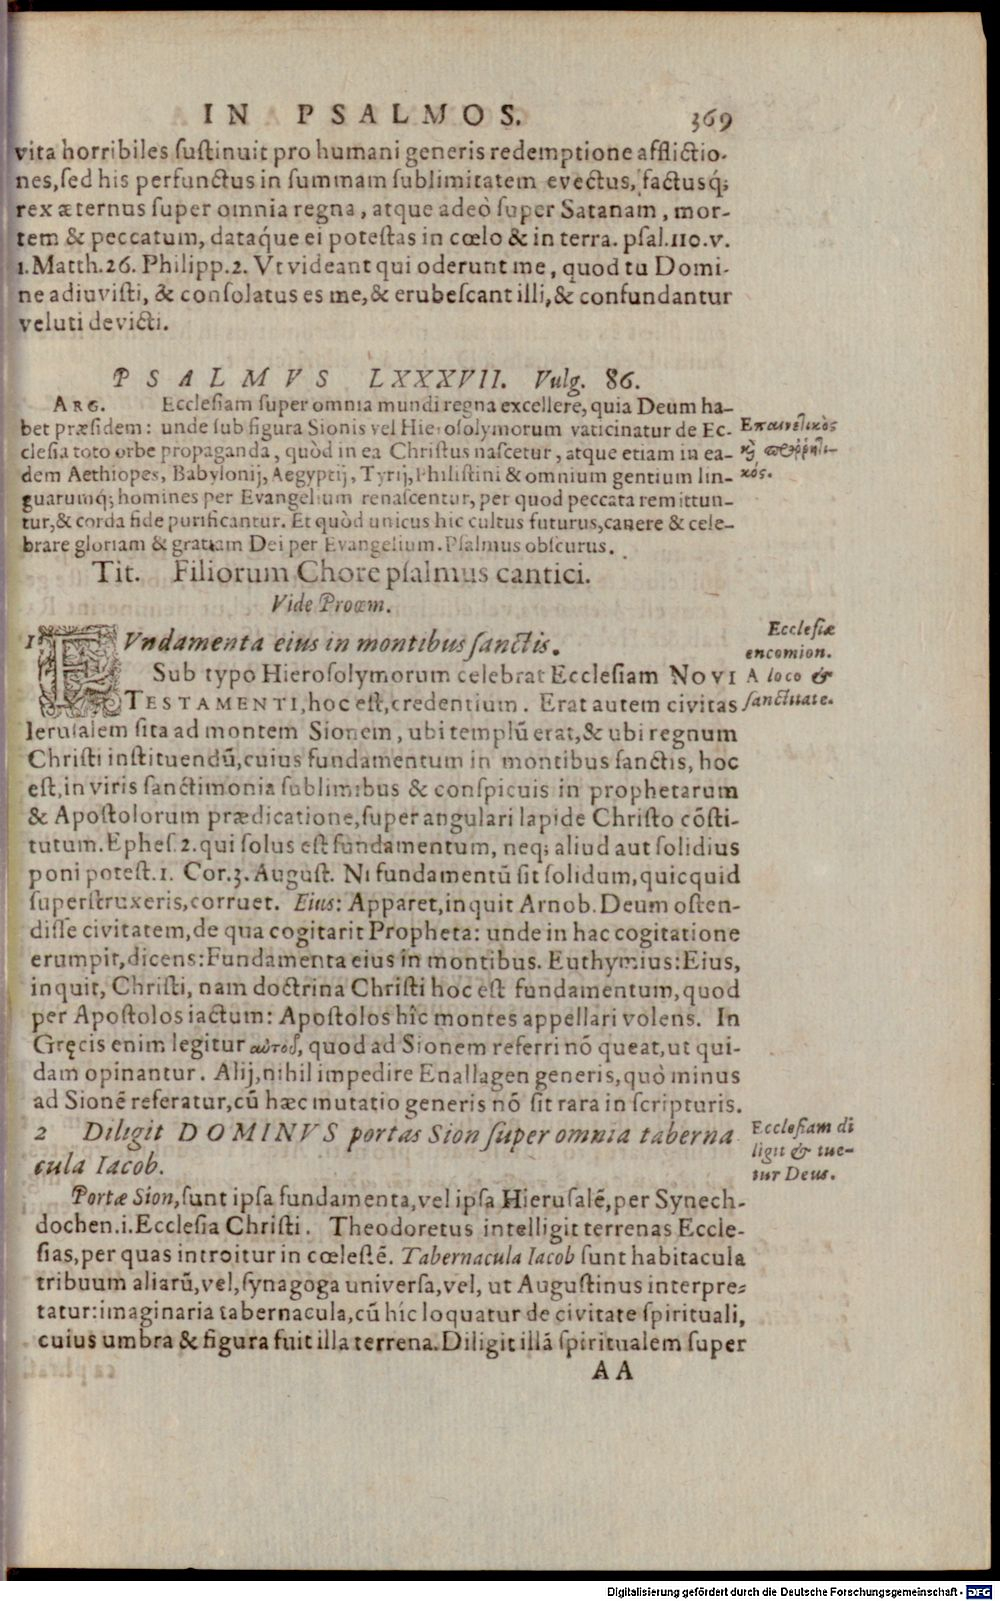 IN PSALMOS. 369
vita horribiles ſuſtinuit pro humani generis redemptione afflictio-
nes, ſed his perfunctus in ſummam ſublimitatem evectus, factusq́;
rex æternus ſuper omnia regna, atque adeò ſuper Satanam, mor-
tem & peccatum, dataq́ue ei poteſtas in cœlo & in terra. pſal.110.v.
1. Matth.26. Philipp.2. Vt videant qui oderunt me, quod tu Domi-
ne adiuviſti, & conſolatus es me, & erubeſcant illi, & confundantur
veluti devicti.
PSALMVS LXXXVII. Vulg. 86.
ARG. Eccleſiam ſuper omnia mundi regna excellere, quia Deum ha-
bet præſidem: unde ſub figura Sionis vel Hieroſolymorum vaticinatur de Ec-
cleſia toto orbe propaganda, quòd in ea Chriſtus naſcetur, atque etiam in ea-
dem Aethiopes, Babylonij, Aegyptij, Tyrij, Philiſtini & omnium gentium lin-
guarumq́; homines per Evangelium renaſcentur, per quod peccata remittun-
tur, & corda fide purificantur. Et quòd unicus hic cultus futurus, canere & cele-
brare gloriam & gratiam Dei per Evangelium. Pſalmus obſcurus.
Επαινετικὸς
κὸς.
Tit. Filiorum Chore pſalmus cantici.
Vide Proœm.
1 FVndamenta eius in montibus ſanctis.
Sub typo Hieroſolymorum celebrat Eccleſiam NOVI
TESTAMENTI, hoc eſt, credentium. Erat autem civitas
Ieruſalem ſita ad montem Sionem, ubi templū erat, & ubi regnum
Chriſti inſtituendū, cuius fundamentum in montibus ſanctis, hoc
eſt, in viris ſanctimonia ſublimibus & conſpicuis in prophetarum
& Apoſtolorum prædicatione, ſuper angulari lapide Chriſto cōſti-
tutum. Epheſ.2. qui ſolus eſt fundamentum, neq; aliud aut ſolidius
poni poteſt. 1. Cor.3. Auguſt. Ni fundamentū ſit ſolidum, quicquid
ſuperſtruxeris, corruet. Eius: Apparet, inquit Arnob. Deum oſten-
diſſe civitatem, de qua cogitarit Propheta: unde in hac cogitatione
erumpit, dicens: Fundamenta eius in montibus. Euthymius: Eius,
inquit, Chriſti, nam doctrina Chriſti hoc eſt fundamentum, quod
per Apoſtolos iactum: Apoſtolos hîc montes appellari volens. In
Gręcis enim legitur αὐτοῦ, quod ad Sionem referri nō queat, ut qui-
dam opinantur. Alij, nihil impedire Enallagen generis, quò minus
ad Sionē referatur, cū hæc mutatio generis nō ſit rara in ſcripturis.
Eccleſiæ
encomion.
A loco &
ſanctitate.
2 Diligit DOMINVS portas Sion ſuper omnia taberna
cula Iacob.
Eccleſiam di
ligit & tue-
tur Deus.
Portæ Sion, ſunt ipſa fundamenta, vel ipſa Hieruſalē, per Synech-
dochen.i. Eccleſia Chriſti. Theodoretus intelligit terrenas Eccle-
ſias, per quas introitur in cœleſtē. Tabernacula Iacob ſunt habitacula
tribuum aliarū, vel, ſynagoga univerſa, vel, ut Auguſtinus interpre-
tatur: imaginaria tabernacula, cū hîc loquatur de civitate ſpirituali,
cuius umbra & figura fuit illa terrena. Diligit illā ſpiritualem ſuper
AA
Digitalisierung gefördert durch die Deutsche Forschungsgemeinschaft - DFG